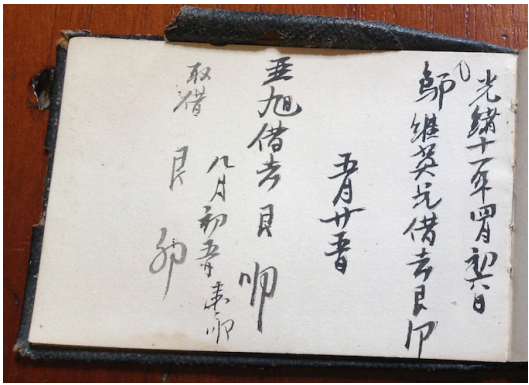 光緒十一年四月初六日
鄔維英兄借去艮
五月廿五日
亚旭借去艮
八月初五日来
取借 艮